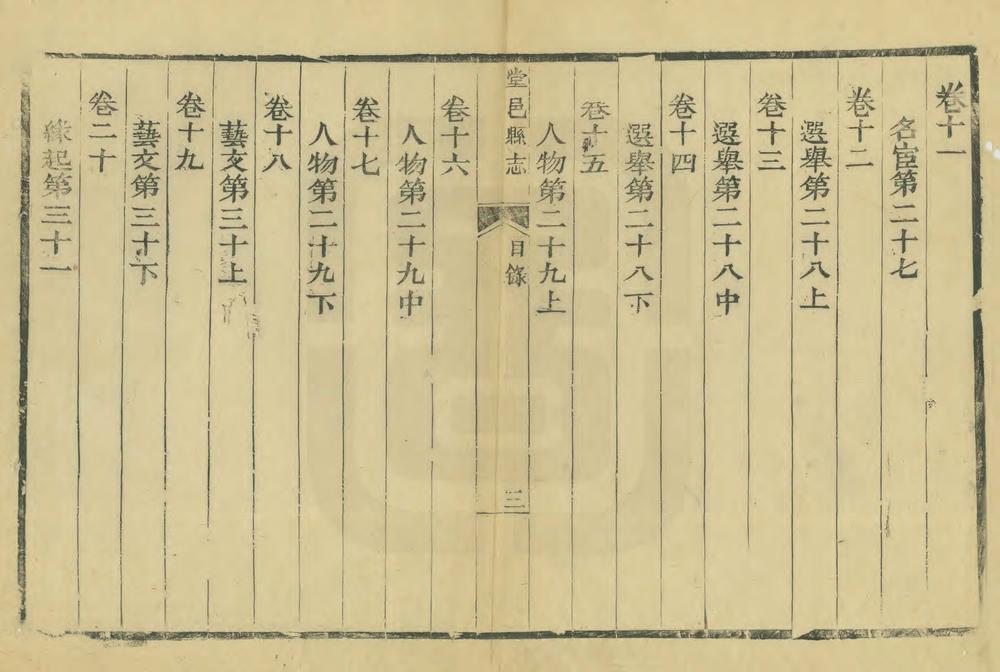 卷十一
名宦第二十七
卷十二
選舉第二十八上
卷十三
選舉第二十八中
卷十四
選舉第二十八下
卷十五
人物第二十九上
堂邑縣志 目錄 三
卷十六
人物第二十九中
卷十七
人物第二十九下
卷十八
藝文第三十上
卷十九
藝文第三十下
卷二十
緣起第三十一